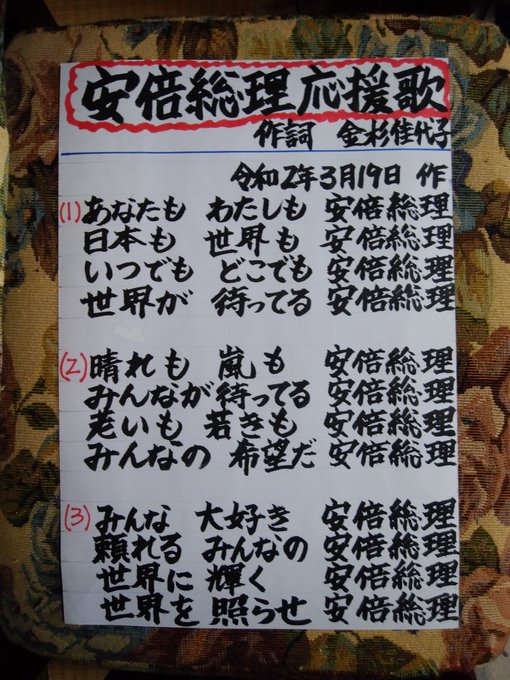 安倍総理応援歌
作詞 金杉佳代子
令和2年3月19日 作
(1)あなたも わたしも 安倍総理
日本も 世界も 安倍総理
いつでも どこでも 安倍総理
世界が 待ってる 安倍総理
(2)晴れも 嵐も 安倍総理
みんなが待ってる 安倍総理
老いも 若きも 安倍総理
みんなの 希望だ 安倍総理
(3)みんな 大好き 安倍総理
頼れる みんなの 安倍総理
世界に 輝く 安倍総理
世界を 照らせ 安倍総理